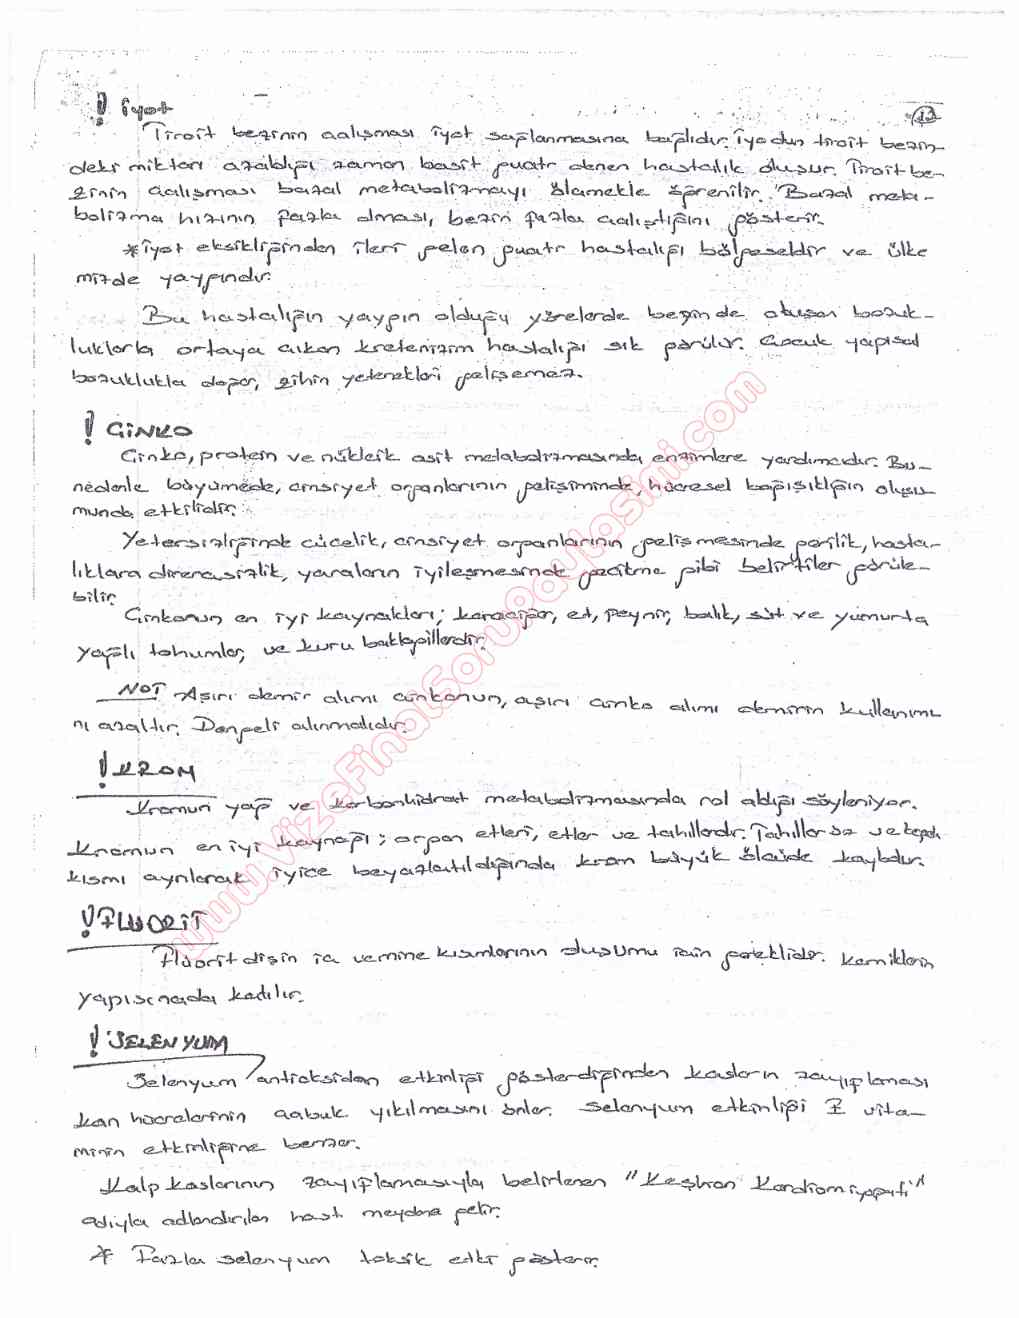 ! iyot
12
Tiroit bezinin çalışması iyot sağlanmasına bağlıdır. İyodun tiroit bezin-
deki miktarı azaldığı zaman basit guatr denen hastalık oluşur. Tiroit be-
zinin çalışması bazal metabolizmayı ölçmekle öğrenilir. Bazal meta-
bolizma hızının fazla olması, bezin fazla çalıştığını gösterir.
*İyot eksikliğinden ileri gelen guatr hastalığı bölgeseldir ve ülke
mizde yaygındır.
Bu hastalığın yaygın olduğu yörelerde bezinde oluşan bozuk-
luklarla ortaya çıkan kretenizim hastalığı sık görülür. Çocuk yapısal
bozuklukla doğar, zihin yetenekleri gelişemez.
! ÇİNKO
Çinko, protein ve nükleik asit metabolizmasında enzimlere yardımcıdır. Bu
nedenle büyümede, cinsiyet organlarının gelişiminde, hücresel bağışıklığın oluşu
munda etkilidir.
Yetersizliğinde cücelik, cinsiyet organlarının gelişmesinde gerilik, hasta-
lıklara dirençsizlik, yaraların iyileşmesinde gecikme gibi belirtiler görüle-
bilir.
Çinkonun en iyi kaynakları; karaciğer, et, peynir, balık, süt ve yumurta
yağlı tohumlar, ve kuru baklagillerdir.
NOT Aşırı demir alımı çinkonun, aşırı çinko alımı demirin kullanımı
nı azaltır. Dengeli alınmalıdır.
! KROM
Kromun yağ ve karbonhidrat metabolizmasında rol aldığı söyleniyor.
Kromun en iyi kaynağı; organ etleri, etler ve tahıllardır. Tahıllar öz ve kepek
kısmı ayrılarak iyice beyazlatıldığında krom büyük ölçüde kaybolur.
! FLUORİT
Fluorit dişin iç ve mine kısımlarının oluşumu için gereklidir. Kemiklerin
yapısınada katılır.
! SELENYUM
Selenyum antioksidan etkinliği gösterdiğinden kasların zayıflaması
kan hücrelerinin çabuk yıkılmasını önler. Selenyum etkinliği E vita-
minin etkinliğine benzer.
Kalp kaslarının zayıflamasıyla belirlenen "Keshan Kardiomiyopati"
adıyla adlandırılan hast meydana gelir.
* Fazla selenyum toksik etki gösterir.
www.VizeFinalSoruPaylasimi.com